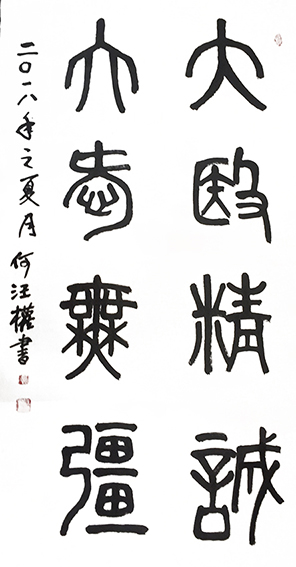 大殹精誠
大㤅無彊
二〇一八年之夏月何汪權書